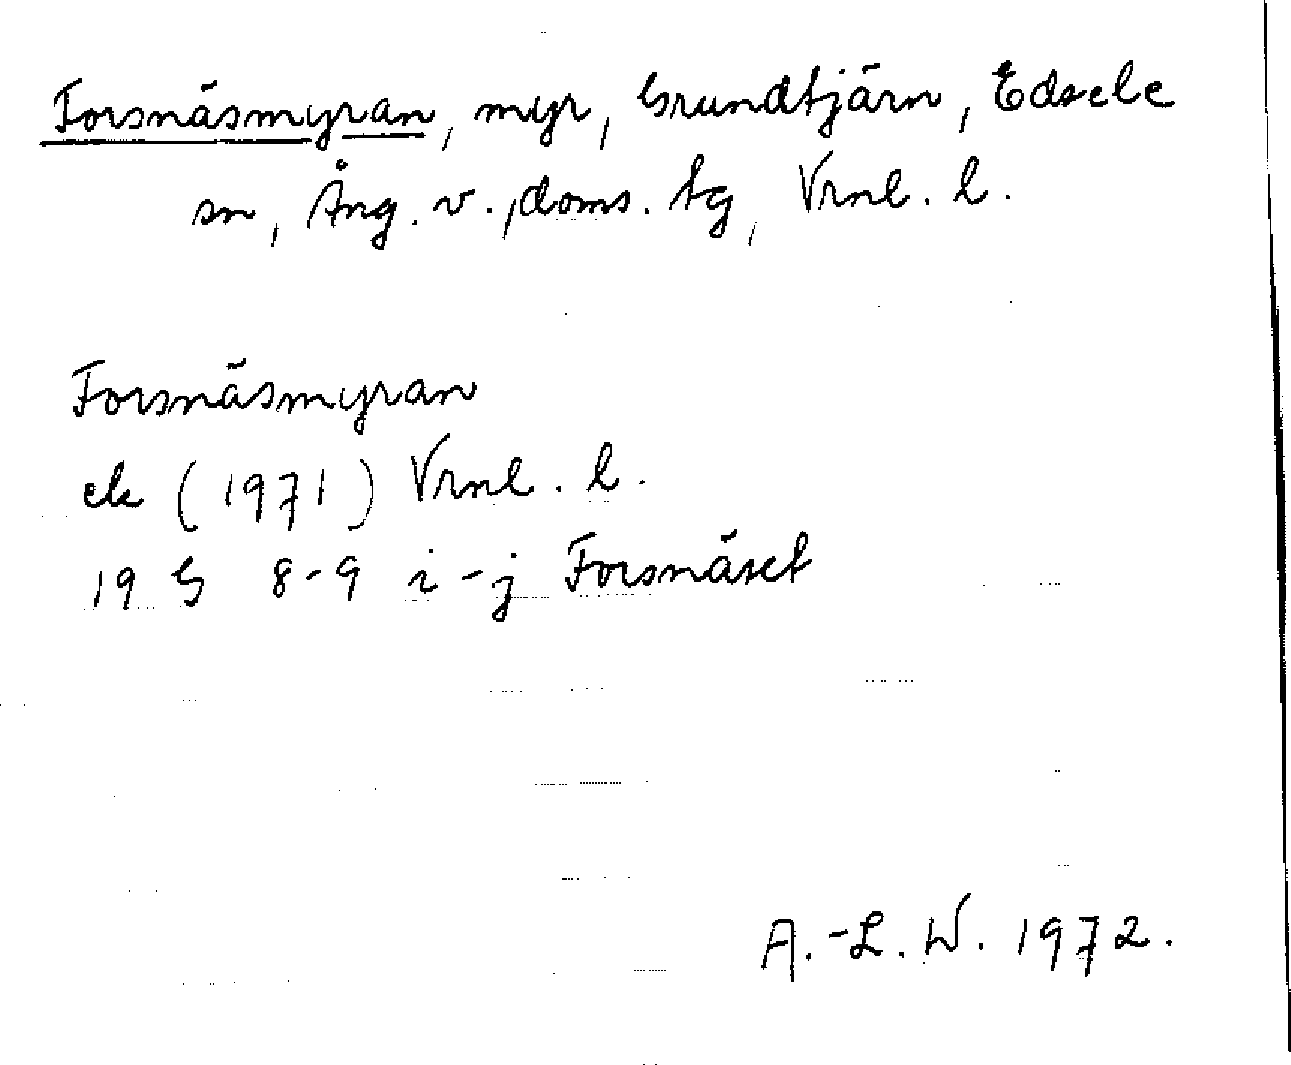 Forsnäsmyran, myr, Grundtjärn, Edsele
sn, Ång. v., doms. tg, Vrnl. l.
Forsnäsmyran
ek (1971) Vrnl. l.
19 G 8-9 i-j Forsnäset
A.-L. W. 1972.